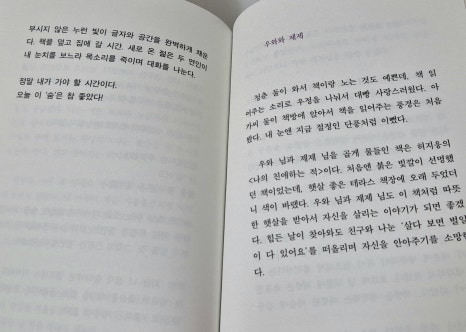 부시지 않은 누런 빛이 글자와 공간을 완벽하게 채운
다. 책을 덮고 집에 갈 시간. 새로 온 젊은 두 연인이
내 눈치를 보느라 목소리를 죽이며 대화를 나눈다.
정말 내가 가야 할 시간이다.
오늘 이 '숨'은 참 좋았다!
우와와 제제
청춘 둘이 와서 책이랑 노는 것도 예쁜데, 책 읽
어주는 소리로 우정을 나눠서 대빵 사랑스러웠다. 아
가씨 둘이 책방에 앉아서 책을 읽어주는 풍경은 처음
봤다. 내 눈엔 지금 절정인 단풍처럼 이뻤다.
우와 님과 제제 님을 곱게 물들인 책은 허지웅의
<나의 친애하는 적>이다. 처음엔 붉은 빛깔이 선명했
던 책이었는데, 햇살 좋은 테라스 책장에 오래 두었더
니 색이 바랬다. 우와 님과 제제 님도 이 책처럼 따뜻
한 햇살을 받아서 자신을 살리는 이야기가 되면 좋겠
다. 힘든 날이 찾아와도 친구와 나눈 '살다 보면 별일
이 다 있어요'를 떠올리며 자신을 안아주기를 소망한
다.